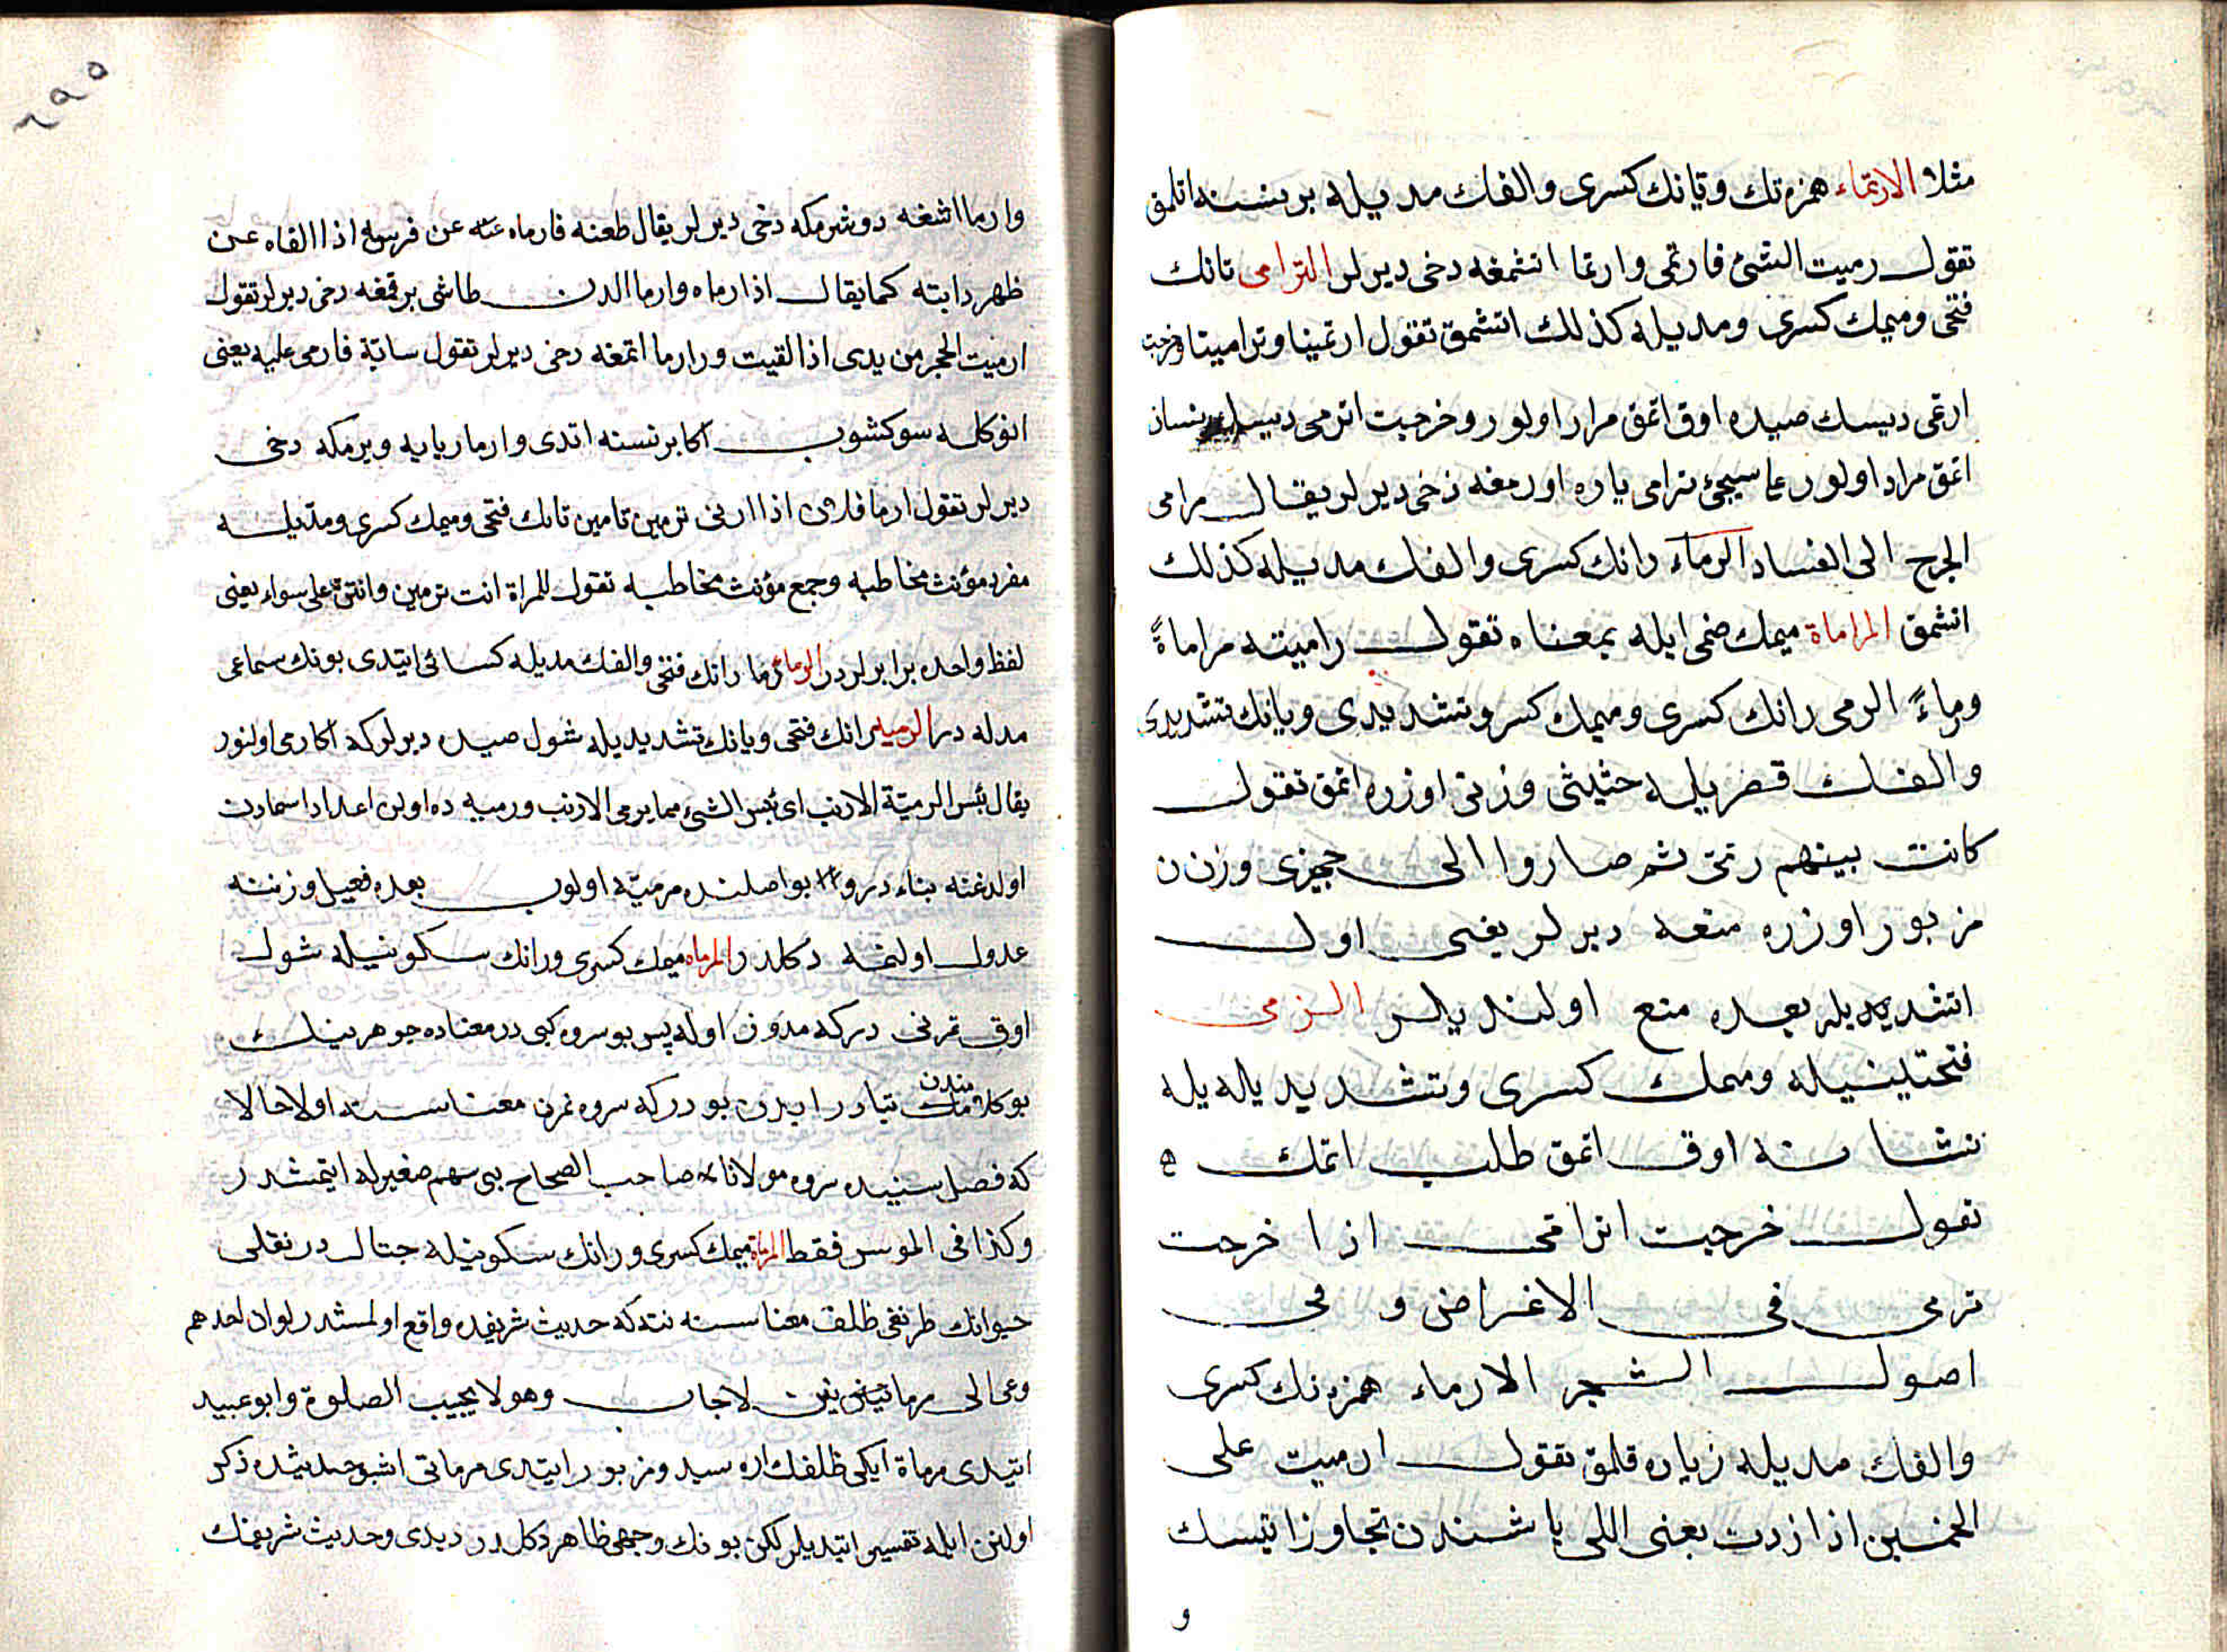 مثلا الارتماء همزه نك وتانك كسرى والفك مديله بر نسنه اتلمق
تقول رميت الشئ فارتمى وارتما اتشمغه دخى ديرلر الترامى تانك
فتحى وميمك كسرى ومديله كذلك اتشمق تقول ارتمينا وترامينا وخرجت
ارتمى ديسك صيده اوق اتمق مراد اولور وخرجت اترمى ديسك نسان
اتمق مراد اولور عاسيجئ ترامى ياره اورمغه دخى ديرلر يقال ترامى
الجرح الى الفساد الرماء رانك كسرى والفك مديله كذلك
اتشمق المراماة ميمك ضمى ايله بمعناه تقول راميته مراماةً
ورماءً الرمى رانك كسرى وميمك كسر وتشديدى ويانك تشديدى
والفك قصريله حثيثى وزنى اوزره اتمق تقول
كانت بينهم رمى ثم صاروا الى حجيزى وزن
مزبور اوزره منعه ديرلر يعنى اول
اتشديديلر بعده منع اولنديلر الترمى
فتحتينيله وميمك كسرى وتشديد يله
نشانه اوق اتمق طلب اتمك
تقول خرجت اترمى اذا خرجت
ترمى فى الاغراض و فى
اصول الشجر الارماء همزه نك كسرى
والفك مديله زياده قلمق تقول ارميت على
الخمسين اذا زدت يعنى اللى ياشندن تجاوز ايتسك
و
٢٩٥
وارما اشغه دوشرمكه دخى ديرلر يقال طعنه فارماه عن فرسه اذا القاه عن
ظهر دابته كما يقال اذا رماه وارما الدن طاشى برقمغه دخى ديرلر تقول
ارميت الحجر من يدى اذا القيت وارما اتمغه دخى ديرلر تقول سابّة فارمى عليه يعنى
انوكله سوكشوب اكا بر نسنه اتدى وارما ربايه ويرمكه دخى
ديرلر تقول ارما فلان اذا اربى ترمين تامين تانك فتحى وميمك كسرى ومديله
مفرد مؤنث مخاطبه وجمع مؤنث مخاطبه تقول للمراة انت ترمين وانتنّ على سواء يعنى
لفظ واحده برابرلردر الرماء رما رانك فتحى والفك مديله كسائى ايتدى بونك سماعى
مدله در الرميه رانك فتحى ويانك تشديديله شول صيده ديرلركه اكا رمى اولنور
يقال بئس الرميّة الارنب اى بئس الشئ مما يرمى الارنب ورميه ده اولن اعداد اسمادن
اولدغنه بناء در و بو اصلنده مرميّه اولوب بعده فعيل وزننه
عدول اولنمه دكلدر المرماه ميمك كسرى ورانك سكونيله شول
اوق تمرنى دركه مدور اوله پس بو سروه كبى در معناده جوهرينك
بو كلامندن متبادر ايدن بودركه سروه تمرن معناسنه اولا حالا
كه فصل سينيده سروه مولانا صاحب الصحاح بى سهم صغيرله ايتمشدر
وكذا فى الموس فقط المرماة ميمك كسرى ورانك سكونيله جتال در نقلى
حيوانك طرنغى ظلف معناسنه نته كه حديث شريفده واقع اولمشدر لو ان احدهم
دعى الى مرماتين لاجاب وهو لا يجيب الصلوة وابو عبيد
ايتدى مرماة ايكى ظلفك اره سيدر ومزبور ايتدى مرماتى اشبو حديثده ذكر
اولنن ايله تفسير ايتديلر لكن بونك وجهى ظاهر دكلدر ديدى وحديث شريفك